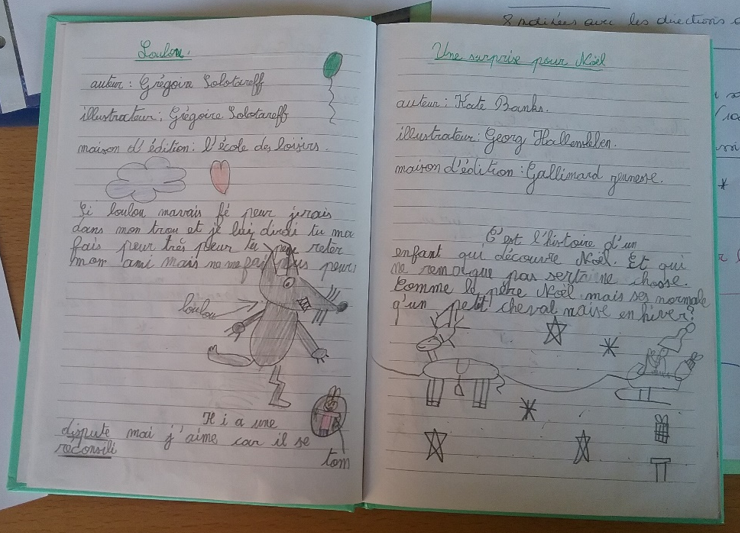 Loulou.
auteur : Grégoire Solotareff
illustrateur : Grégoire Solotareff
maison d'édition : l'école des loisirs.
Si loulou mavais fé peur j'irais
dans mon trou et je lui dirai tu ma
fais peur très peur tu peu reter
mon ami mais ne me fais plus peur
loulou
Il i a une
dispute mai j'aime car il se
réconsili
tom
Une surprise pour Noël
auteur : Kate Banks.
illustrateur : Georg Hallensleben.
maison d'édition : Gallimard jeunesse.
C'est l'histoire d'un
enfant qui découvre Noël. Et qui
ne remarque pas sertaine chose.
Comme le père Noël mais ses normale
q'un petit cheval naise en hiver?
8 petites avec les directions